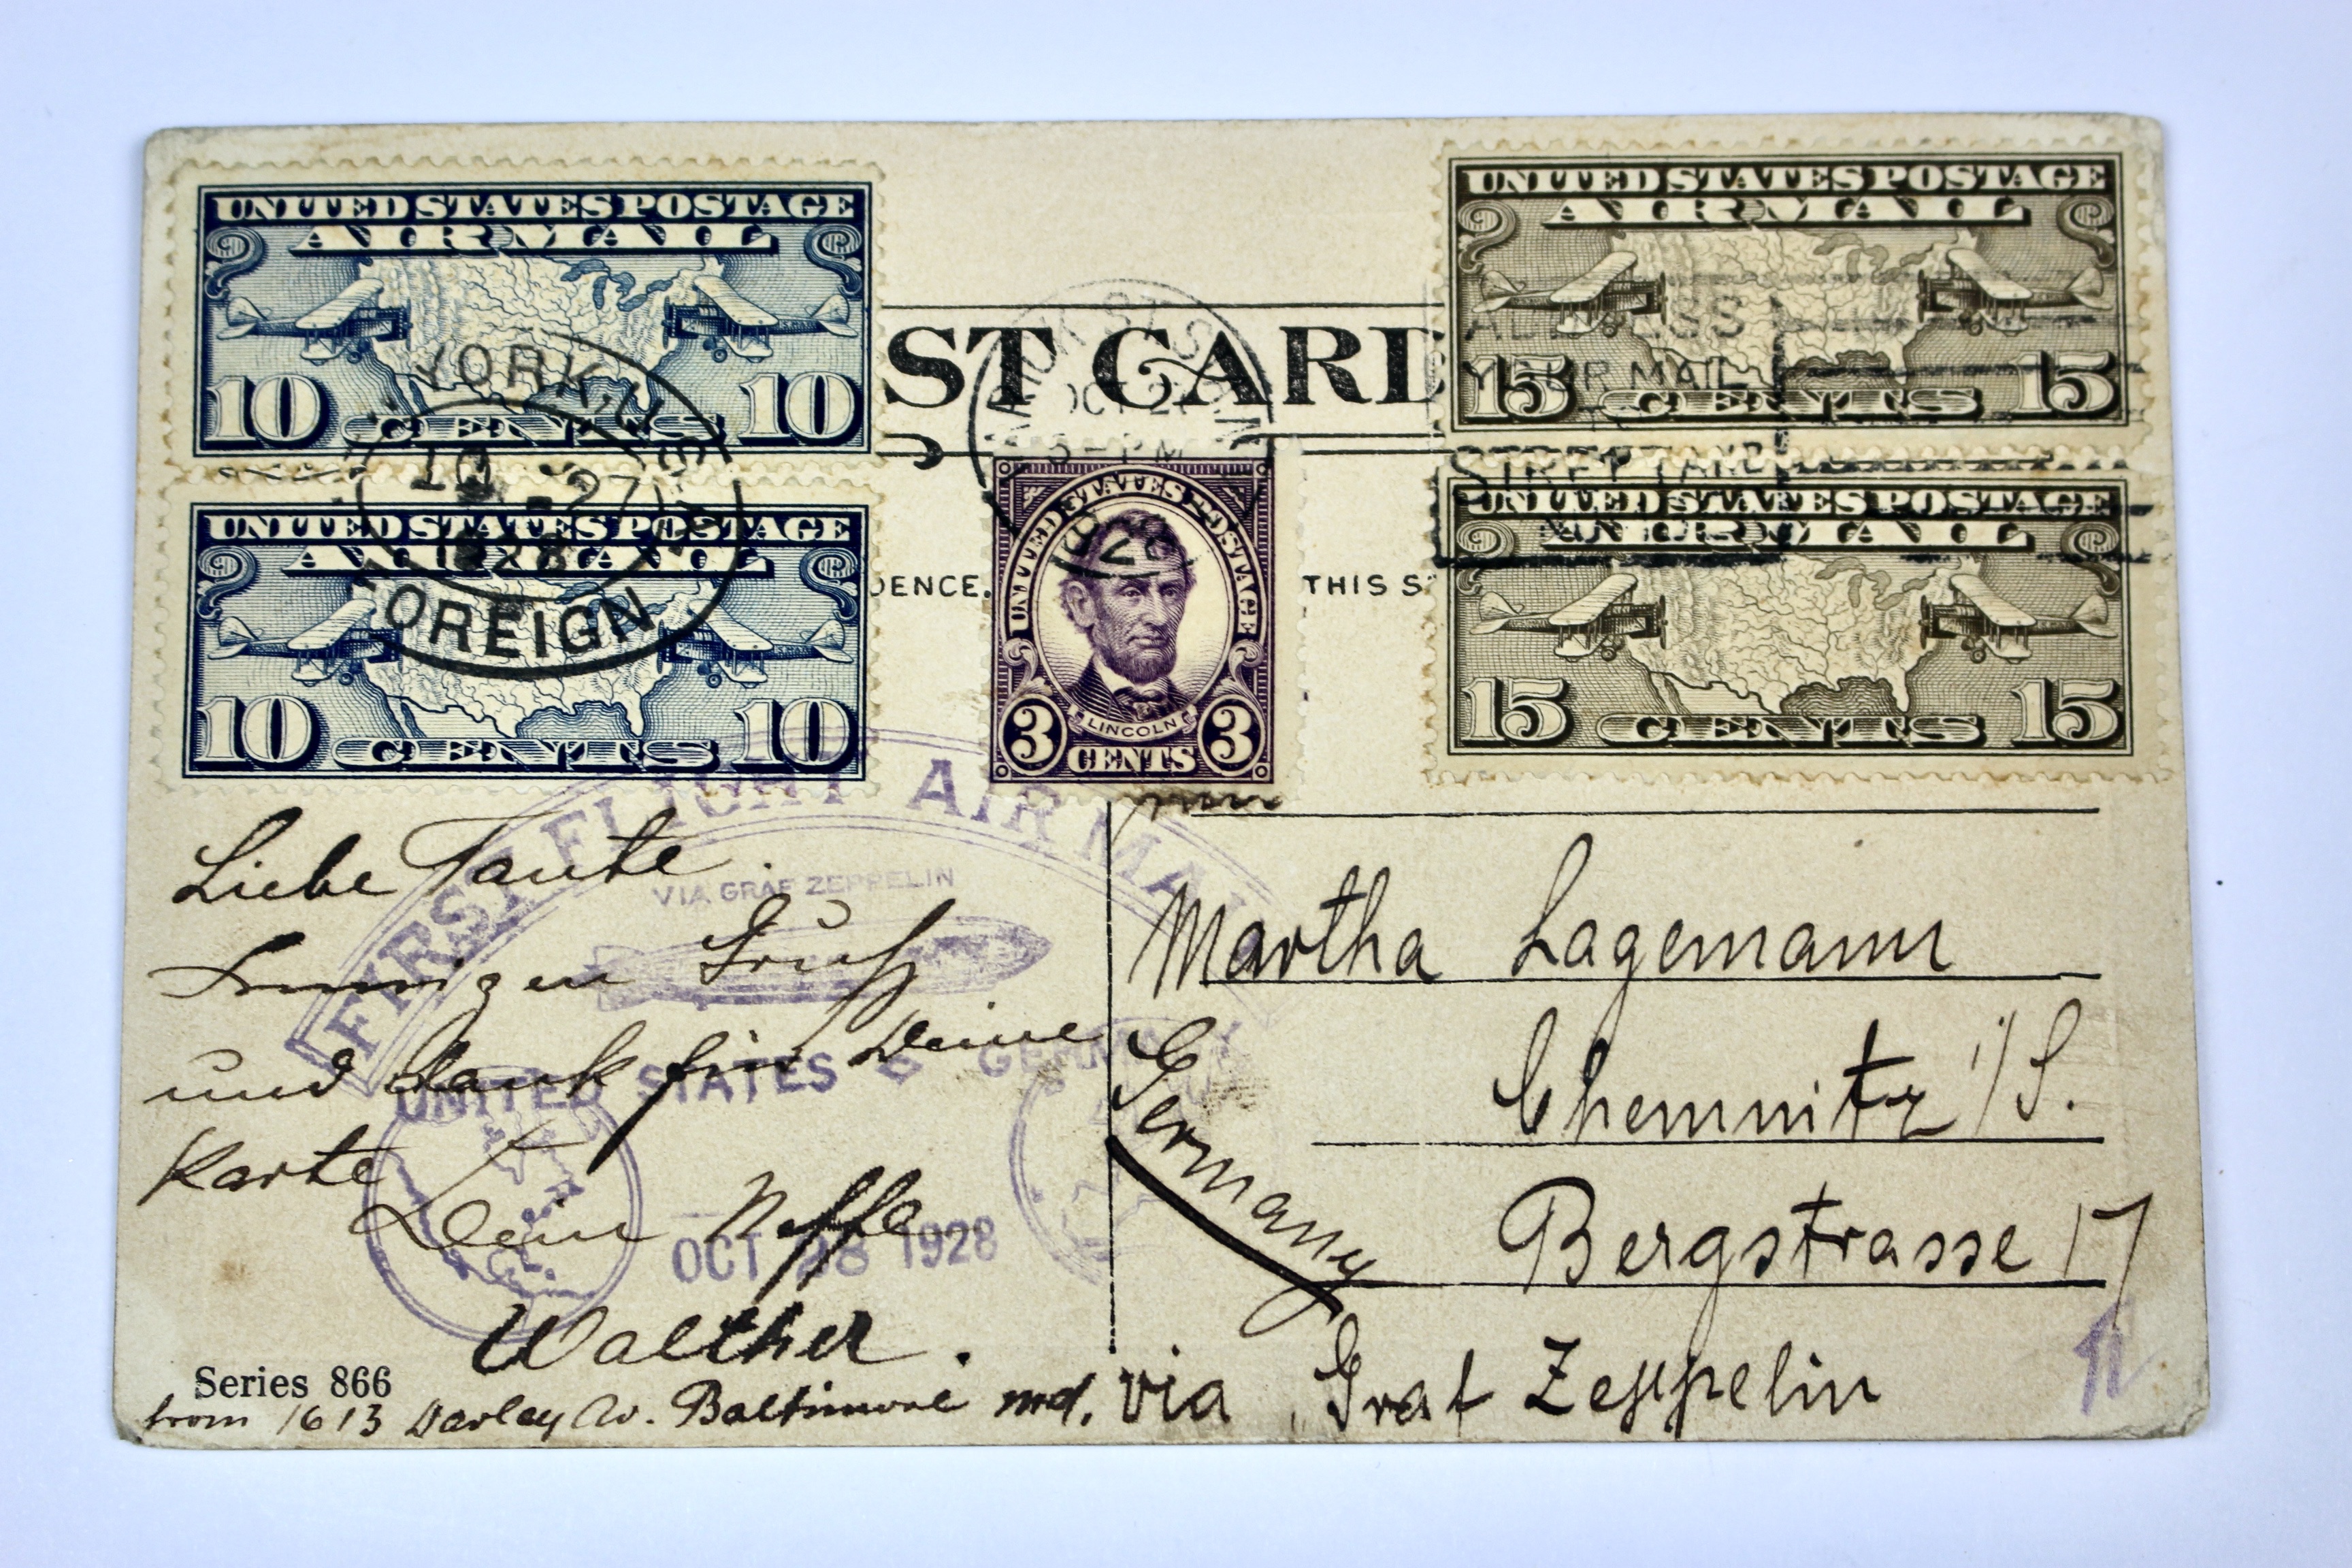 UNITED STATES POSTAGE
AIR MAIL
10 CENTS 10
UNITED STATES POSTAGE
AIR MAIL
10 CENTS 10
YORK, U.S.
10 -27
1928
FOREIGN
ST CARD
OCT 2
5-PM
1928
UNITED STATES POSTAGE
LINCOLN
3 CENTS 3
DENCE.
THIS S
UNITED STATES POSTAGE
AIR MAIL
15 CENTS 15
ADDRESS
YOUR MAIL
TO
STREET AND
NUMBER
UNITED STATES POSTAGE
AIR MAIL
15 CENTS 15
FIRST FLIGHT AIR MAIL
VIA GRAF ZEPPELIN
UNITED STATES GERMANY
OCT 28 1928
Liebe Tante
Innigen Gruß
und Dank für Deine
Karte
Dein Neffe
Walther.
Series 866
from 1613 Darley Av. Baltimore md.
Martha Lagemann
Chemnitz i/S.
Bergstrasse 17
Germany
via Graf Zeppelin